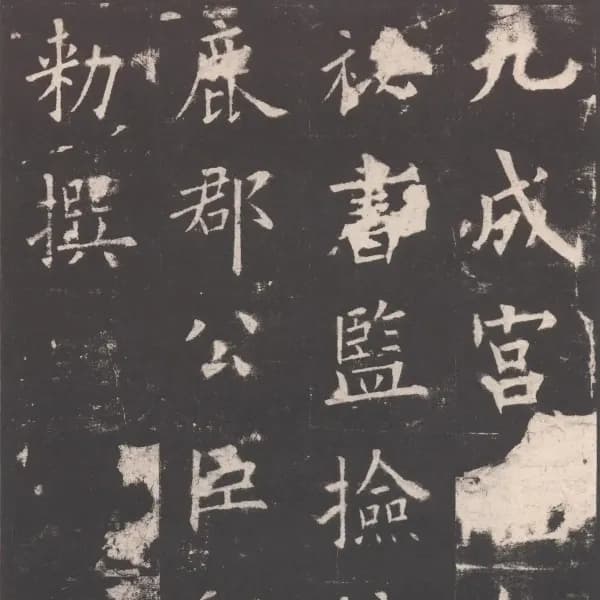 九成宮
祕書監撿
鹿郡公臣
勑撰